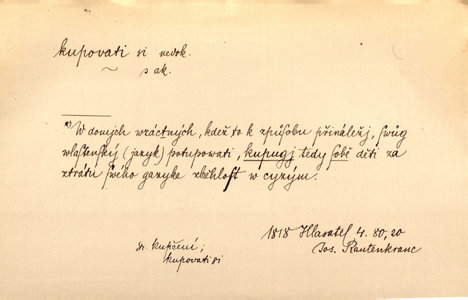 kupovati si nedok.
~ s ak.
*) W domjch wzáctných, kdež to k způsobu přináležj, swůg
wlastenský (jazyk) potupowati, kupugj tedy sobě děti za
ztrátu swého gazyka zběhlost w cyzým.
1818 Hlasatel 4. 80, 20
Jos. Rautenkranc
sr. kupčení;
kupovati si